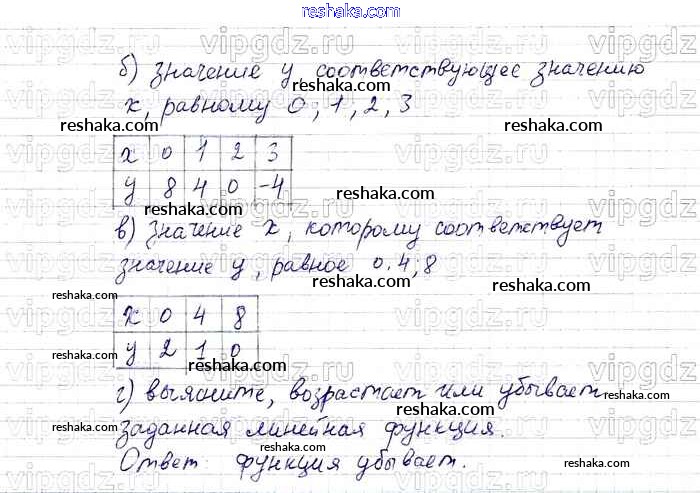 reshaka.com
б) значение y соответствующее значению
x, равному 0; 1, 2, 3
x 0 1 2 3
y 8 4 0 -4
в) значение x, которому соответствует
значение y, равное 0. 4; 8
x 0 4 8
y 2 1 0
г) выясните, возрастает или убывает,
заданная линейная функция.
Ответ: функция убывает.